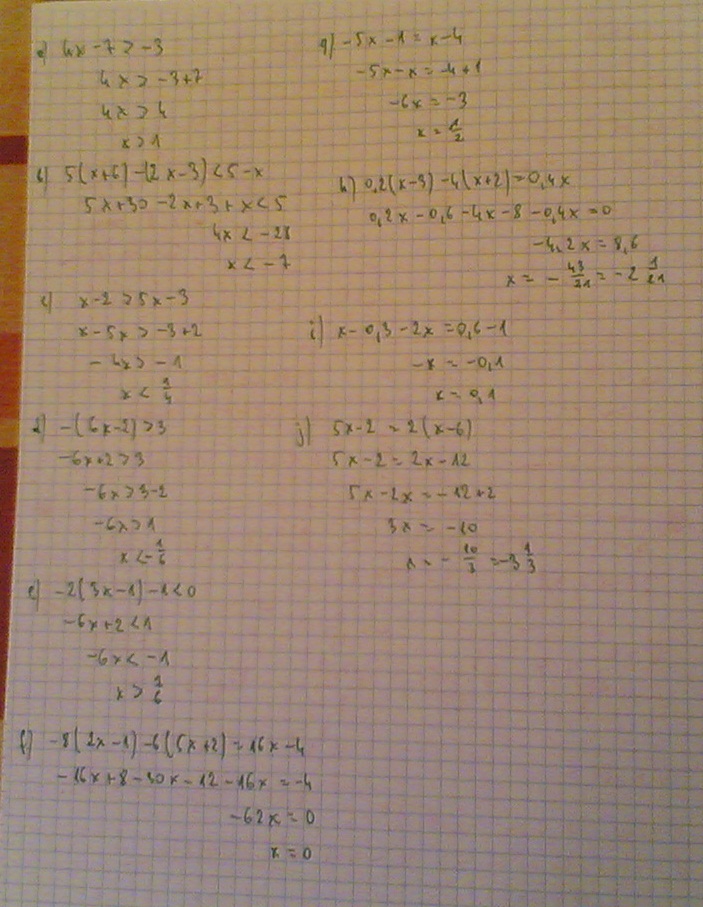 a) 4x - 7 > -3
4x > -3+7
4x > 4
x > 1
b) 5(x+6) - (2x-3) < 5-x
5x+30-2x+3+x < 5
4x < -28
x < -7
c) x-2 > 5x-3
x-5x > -3+2
-4x > -1
x < 1/4
d) -(6x-2) > 3
-6x+2 > 3
-6x > 3-2
-6x > 1
x < -1/6
e) -2(3x-1)-1 < 0
-6x+2 < 1
-6x < -1
x > 1/6
f) -8(2x-1)-6(5x+2) = 16x-4
-16x+8-30x-12-16x = -4
-62x = 0
x = 0
g) -5x-1 = x-4
-5x-x = -4+1
-6x = -3
x = 1/2
h) 0,2(x-3)-4(x+2) = 0,4x
0,2x-0,6-4x-8-0,4x = 0
-4,2x = 8,6
x = -43/21 = -2 1/21
i) x-0,3-2x = 0,6-1
-x = -0,1
x = 0,1
j) 5x-2 = 2(x-6)
5x-2 = 2x-12
5x-2x = -12+2
3x = -10
x = -10/3 = -3 1/3